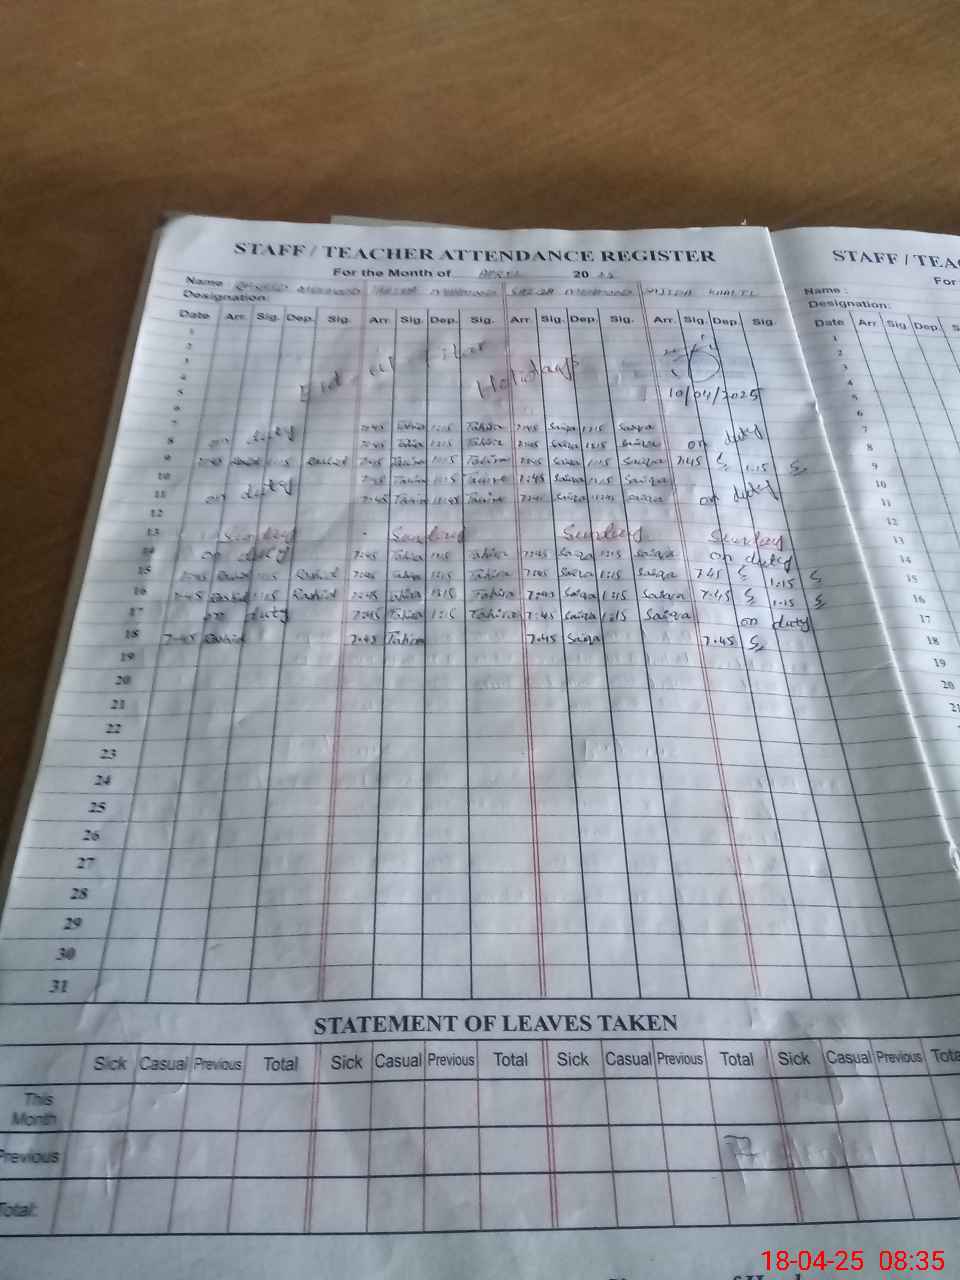 STAFF / TEACHER ATTENDANCE REGISTER
STAFF / TEA
For the Month of APRIL 20 25
For
Name MEHMOOD MEHMOOD MEHMOOD
Name :
Designation:
Designation:
Date Arr. Sig. Dep. Sig. Arr. Sig. Dep. Sig. Arr. Sig. Dep. Sig. Arr. Sig. Dep. Sig.
Date Arr. Sig. Dep. S
1
2
3 Eid-ul-Fitar
4 Holidays
5 10/04/2025
6
7 on duty 7:45 Tahira 1:15 Tahira 7:45 Saiqa 1:15 Saiqa on duty
8 7:45 Tahira 1:15 Tahira 7:45 Saiqa 1:15 Saiqa
9 7:45 Rashid 1:15 Rashid 7:45 Tahira 1:15 Tahira 7:45 Saiqa 1:15 Saiqa 7:45 S 1:15 S
10 on duty 7:45 Tahira 1:15 Tahira 7:45 Saiqa 1:15 Saiqa on duty
11 7:45 Tahira 12:45 Tahira 7:45 Saiqa 12:45 Saiqa
12
13 Sunday Sunday Sunday Sunday
14 on duty 7:45 Tahira 1:15 Tahira 7:45 Saiqa 1:15 Saiqa on duty
15 7:45 Rashid 1:15 Rashid 7:45 Tahira 1:15 Tahira 7:45 Saiqa 1:15 Saiqa 7:45 S 1:15 S
16 7:45 Rashid 1:15 Rashid 7:45 Tahira 1:15 Tahira 7:45 Saiqa 1:15 Saiqa 7:45 S 1:15 S
17 on duty 7:45 Tahira 1:15 Tahira 7:45 Saiqa 1:15 Saiqa on duty
18 7:45 Rashid 7:45 Tahira 7:45 Saiqa 7:45 S
19
20
21
22
23
24
25
26
27
28
29
30
31
1
2
3
4
5
6
7
8
9
10
11
12
13
14
15
16
17
18
19
20
21
STATEMENT OF LEAVES TAKEN
Sick Casual Previous Total Sick Casual Previous Total Sick Casual Previous Total Sick Casual Previous Tota
This Month
Previous
Total:
18-04-25 08:35